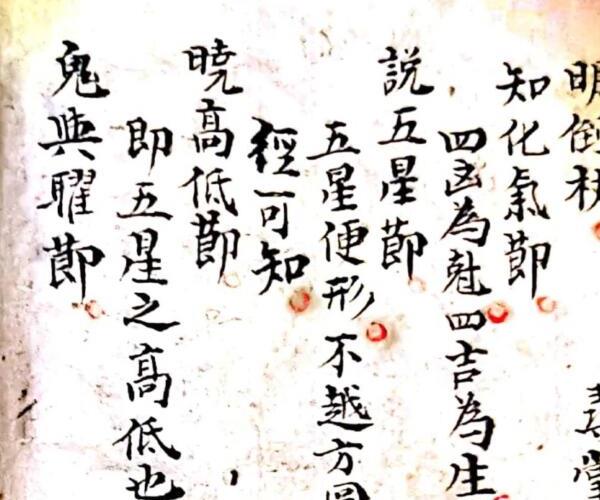 明倒杖
知化氣節
四凶為尅四吉為生
說五星節
五星便形不越方圓
經可知
曉高低節
即五星之高低也
鬼與曜節